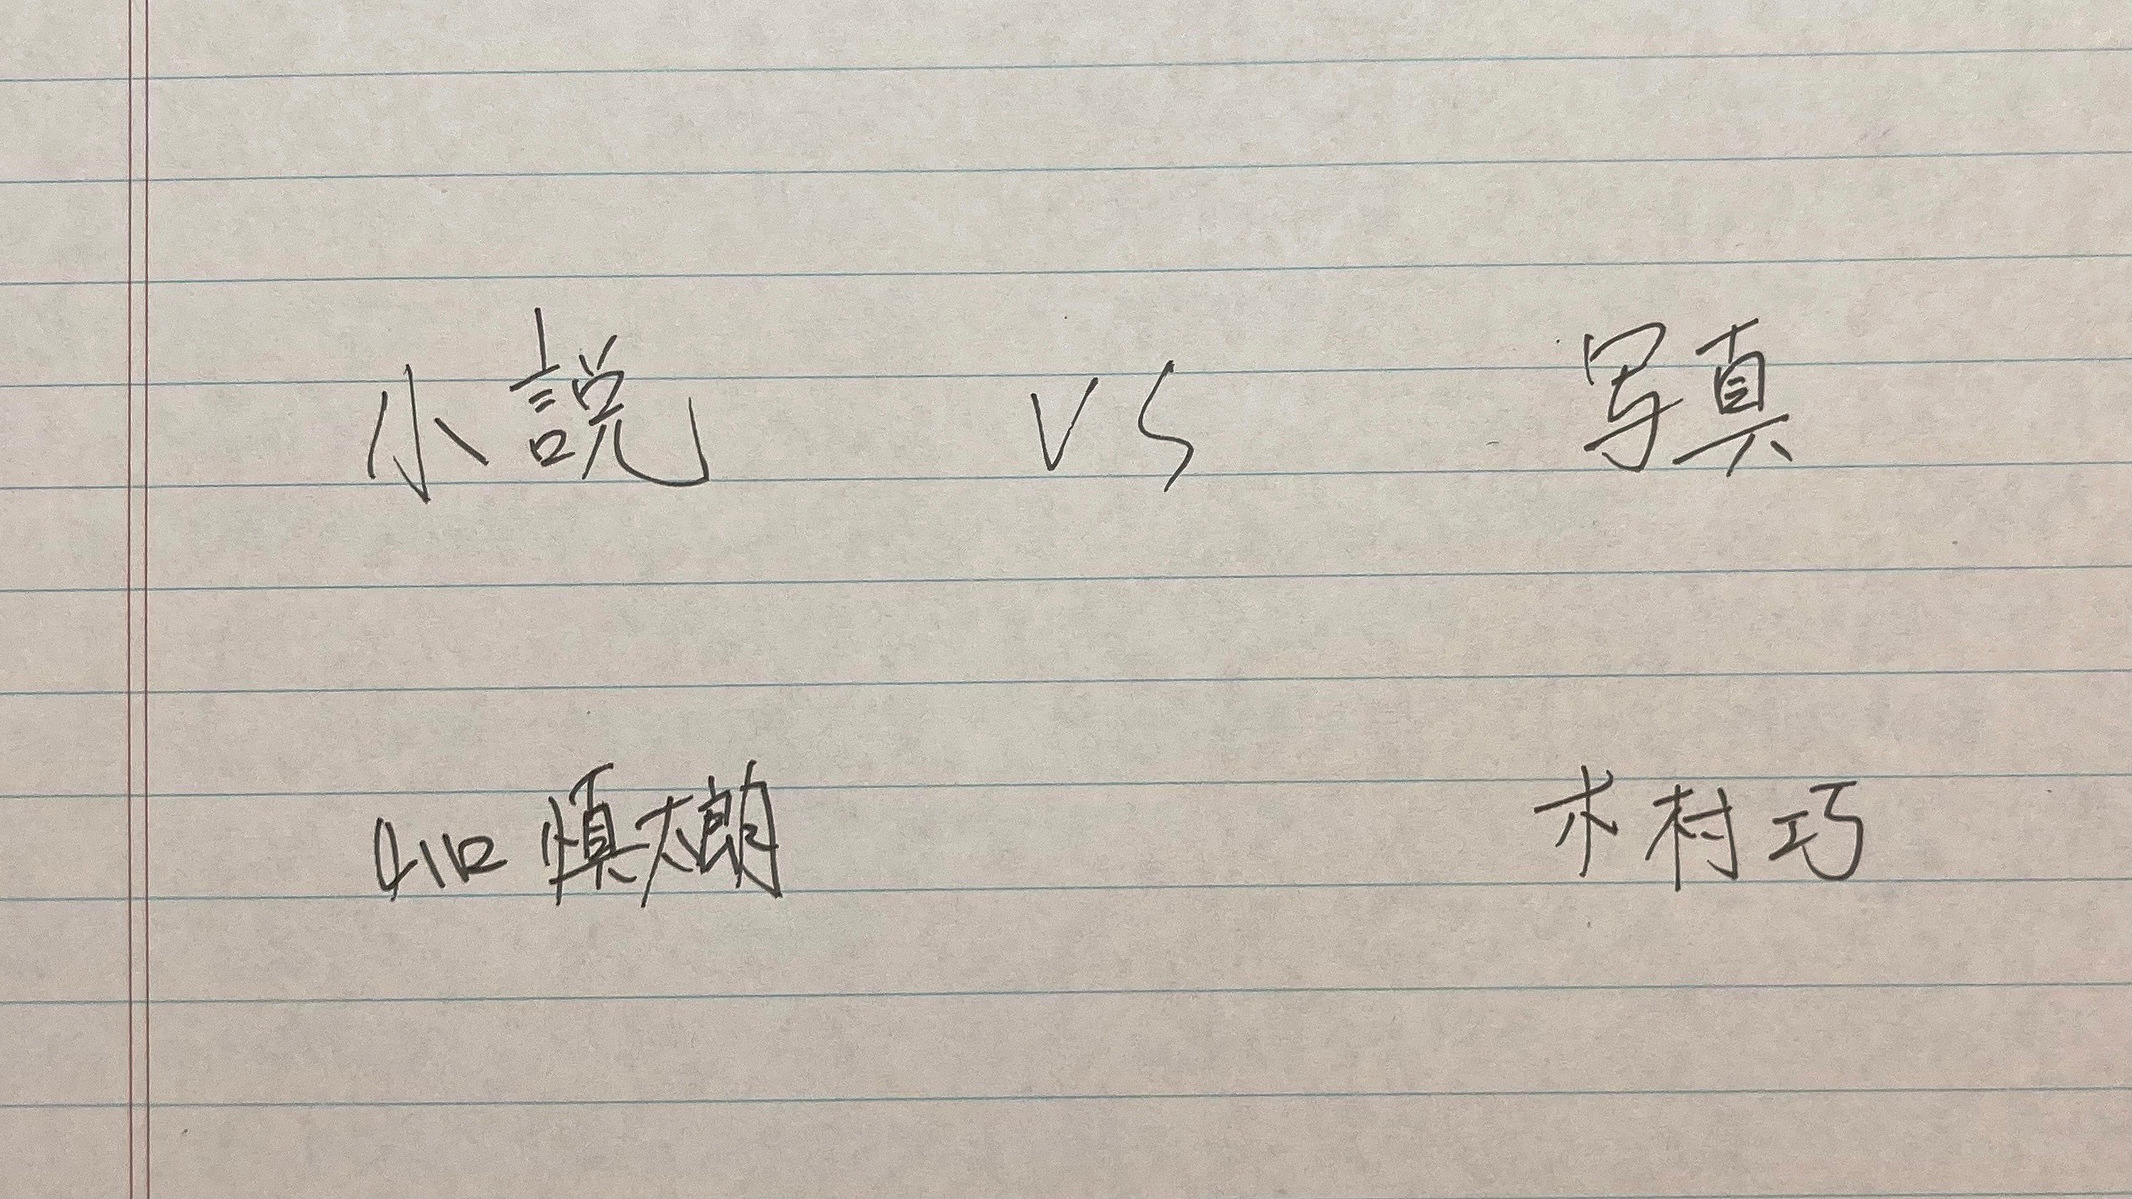 小説 VS 写真
山口慎太朗 木村巧